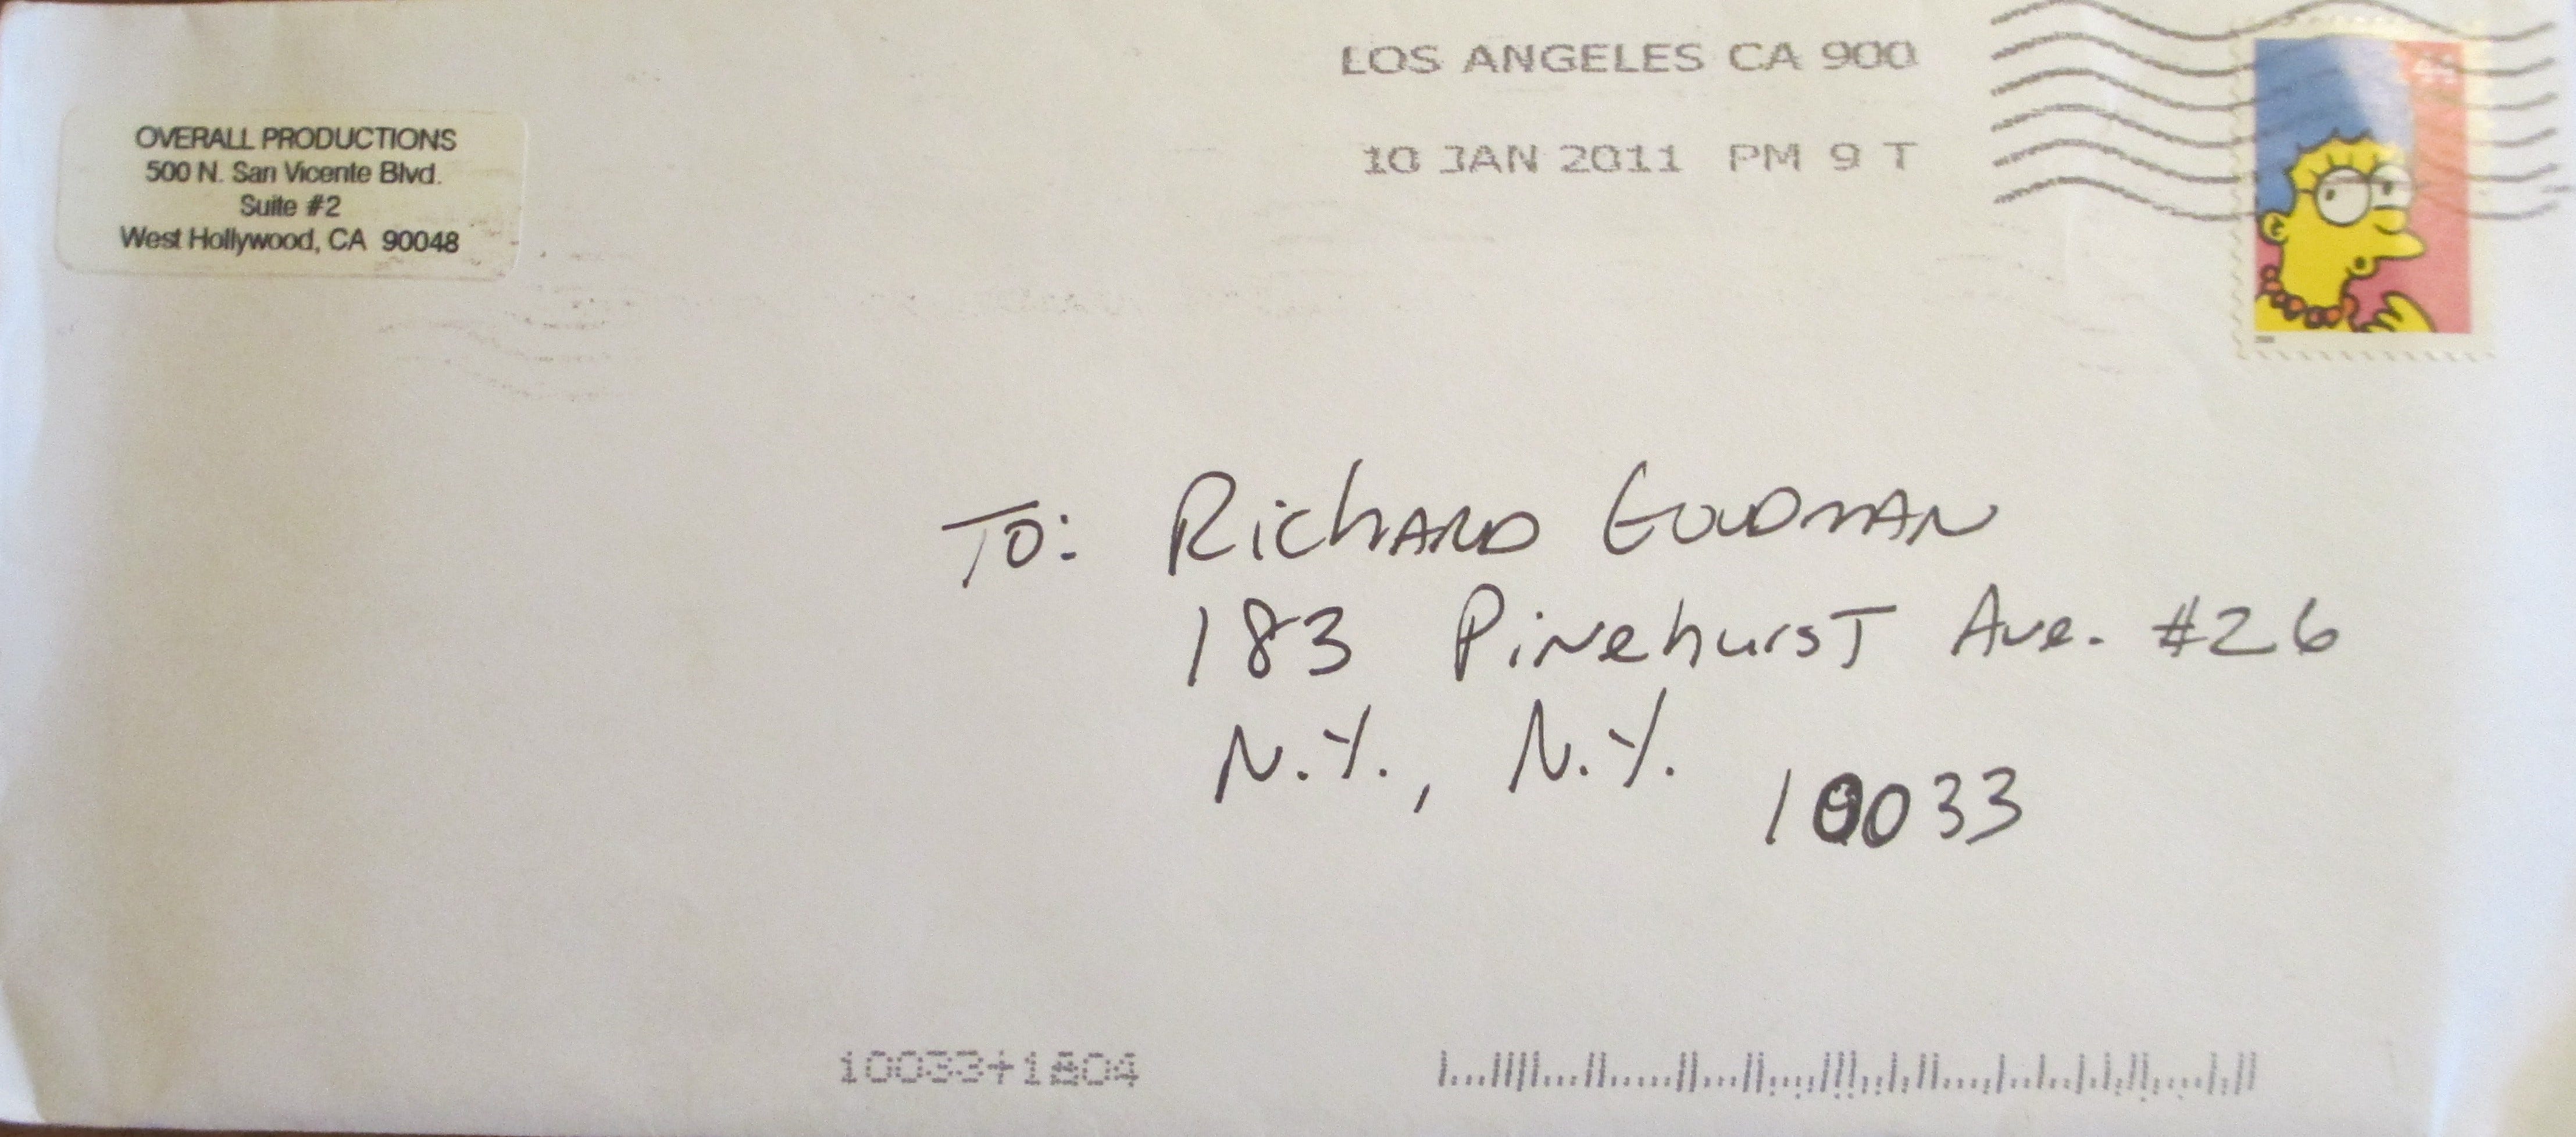 OVERALL PRODUCTIONS
500 N. San Vicente Blvd.
Suite #2
West Hollywood, CA 90048
LOS ANGELES CA 900
10 JAN 2011 PM 9 T
44
To: RichARD GOODMAN
183 PiNehursT Ave. #26
N.Y., N.Y. 10033
10033+1804